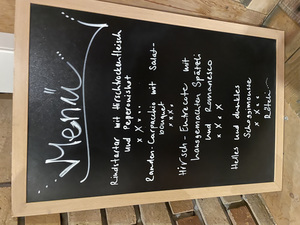 Menü
Rindstartar mit Hirschtrockenfleisch
und Peperonibrot
x x . . .
Randen-Carpaccio mit Salat-
bouquet
x x x .
Hirsch-Entrecôte mit
hausgemachten Spätzli
und Romanesco
x X . X
Helles und dunkles
Schoggimousse
x x . .
Röteli